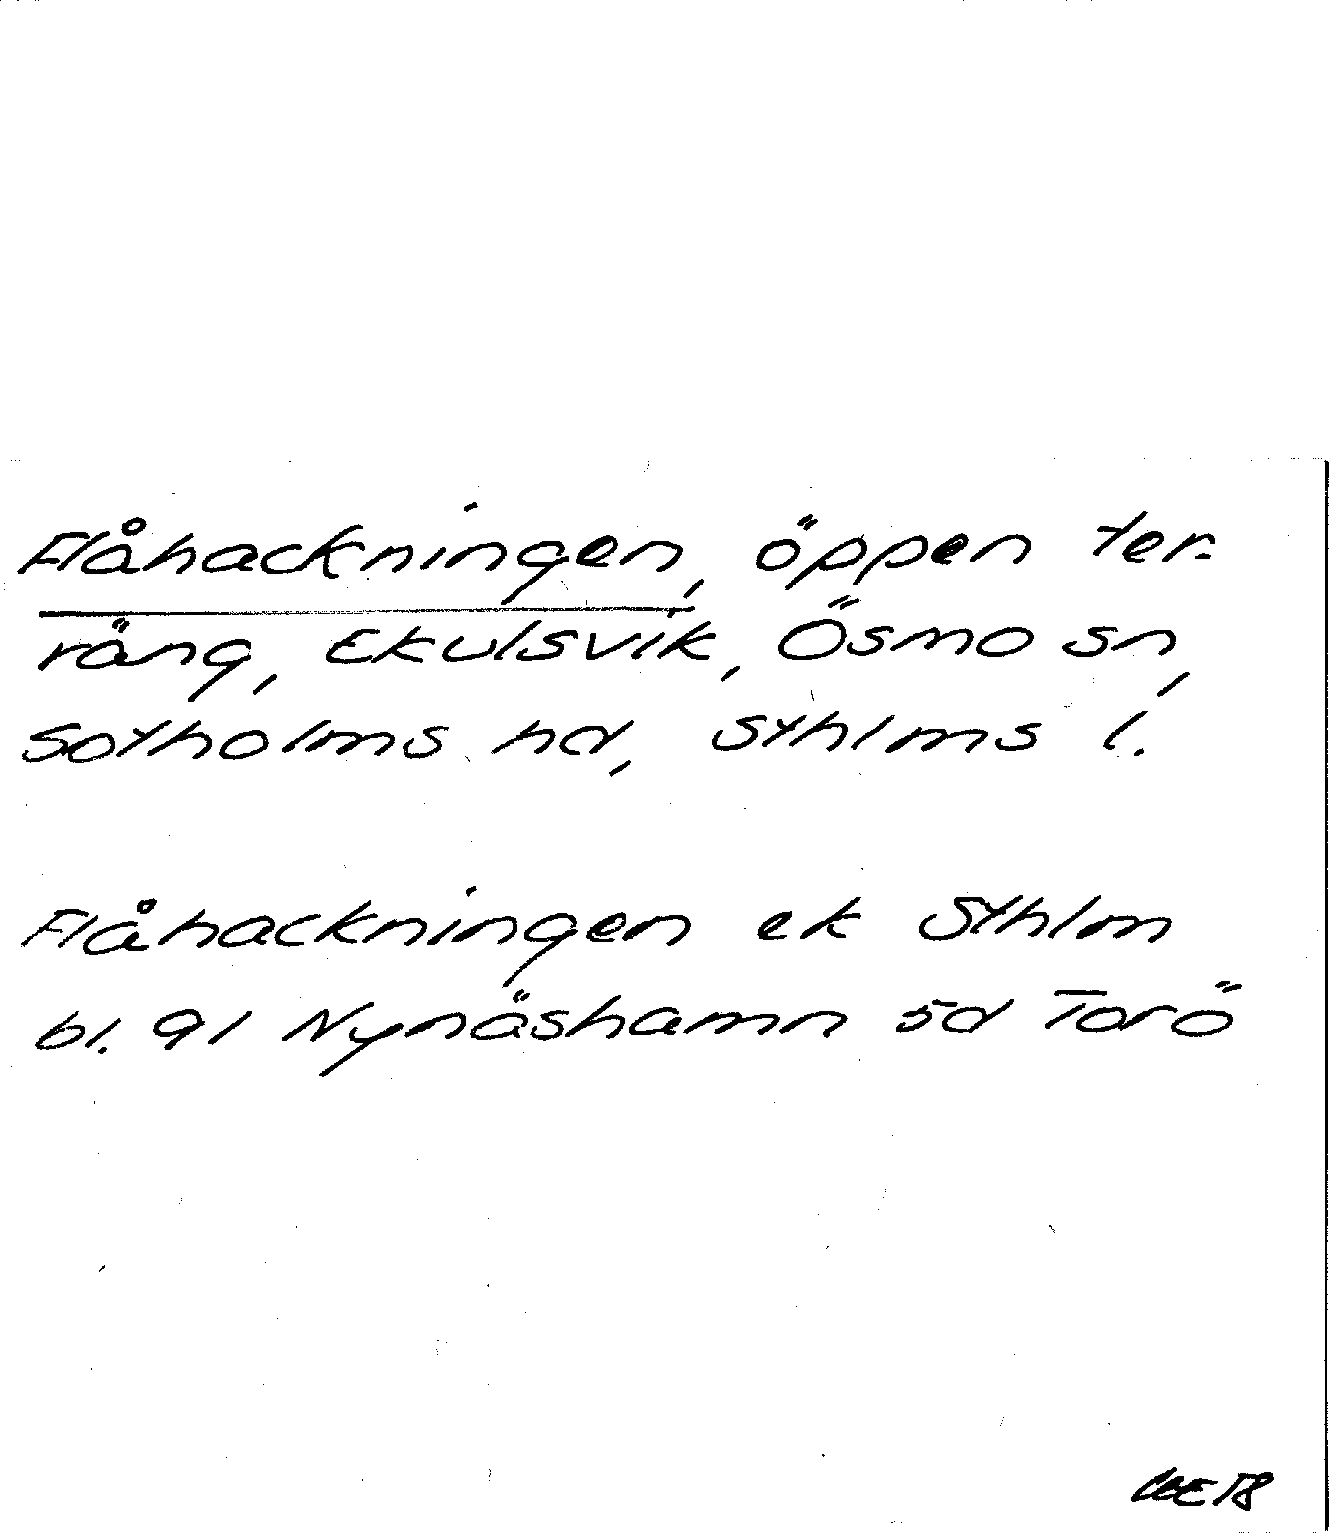 Flåhackningen, öppen ter-
räng, Ekulsvik, Ösmo sn,
Sotholms hd, Sthlms l.
Flåhackningen ek Sthlm
bl. 91 Nynäshamn sd Torö